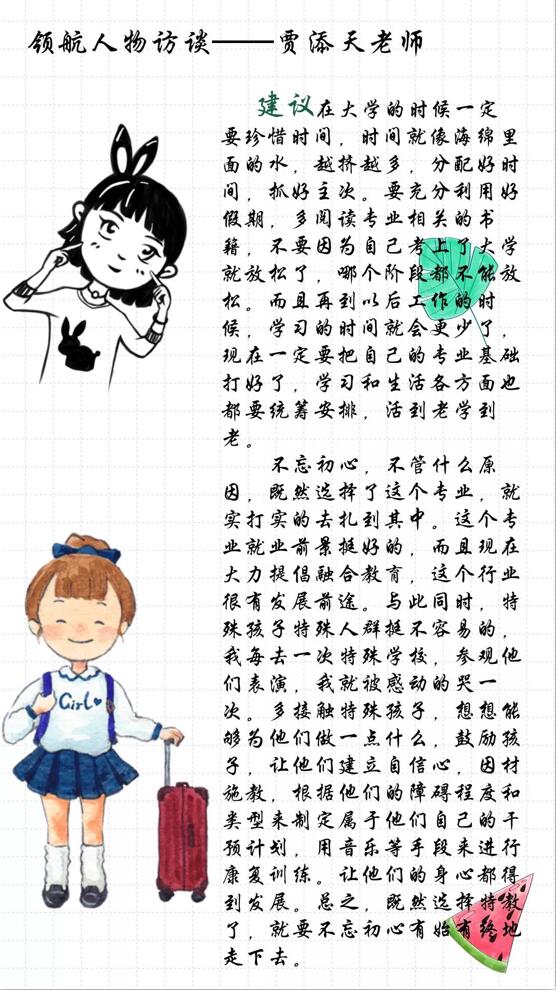 领航人物访谈——贾添天老师
建议在大学的时候一定
要珍惜时间，时间就像海绵里
面的水，越挤越多，分配好时
间，抓好主次。要充分利用好
假期，多阅读专业相关的书
籍，不要因为自己考上了大学
就放松了，哪个阶段都不能放
松。而且再到以后工作的时
候，学习的时间就会更少了，
现在一定要把自己的专业基础
打好了，学习和生活各方面也
都要统筹安排，活到老学到
老。
不忘初心，不管什么原
因，既然选择了这个专业，就
实打实的去扎到其中。这个专
业就业前景挺好的，而且现在
大力提倡融合教育，这个行业
很有发展前途。与此同时，特
殊孩子特殊人群挺不容易的，
我每去一次特殊学校，参观他
们表演，我就被感动的哭一
次。多接触特殊孩子，想想能
够为他们做一点什么，鼓励孩
子，让他们建立自信心，因材
施教，根据他们的障碍程度和
类型来制定属于他们自己的干
预计划，用音乐等手段来进行
康复训练。让他们的身心都得
到发展。总之，既然选择特教
了，就要不忘初心有始有终地
走下去。
Girl